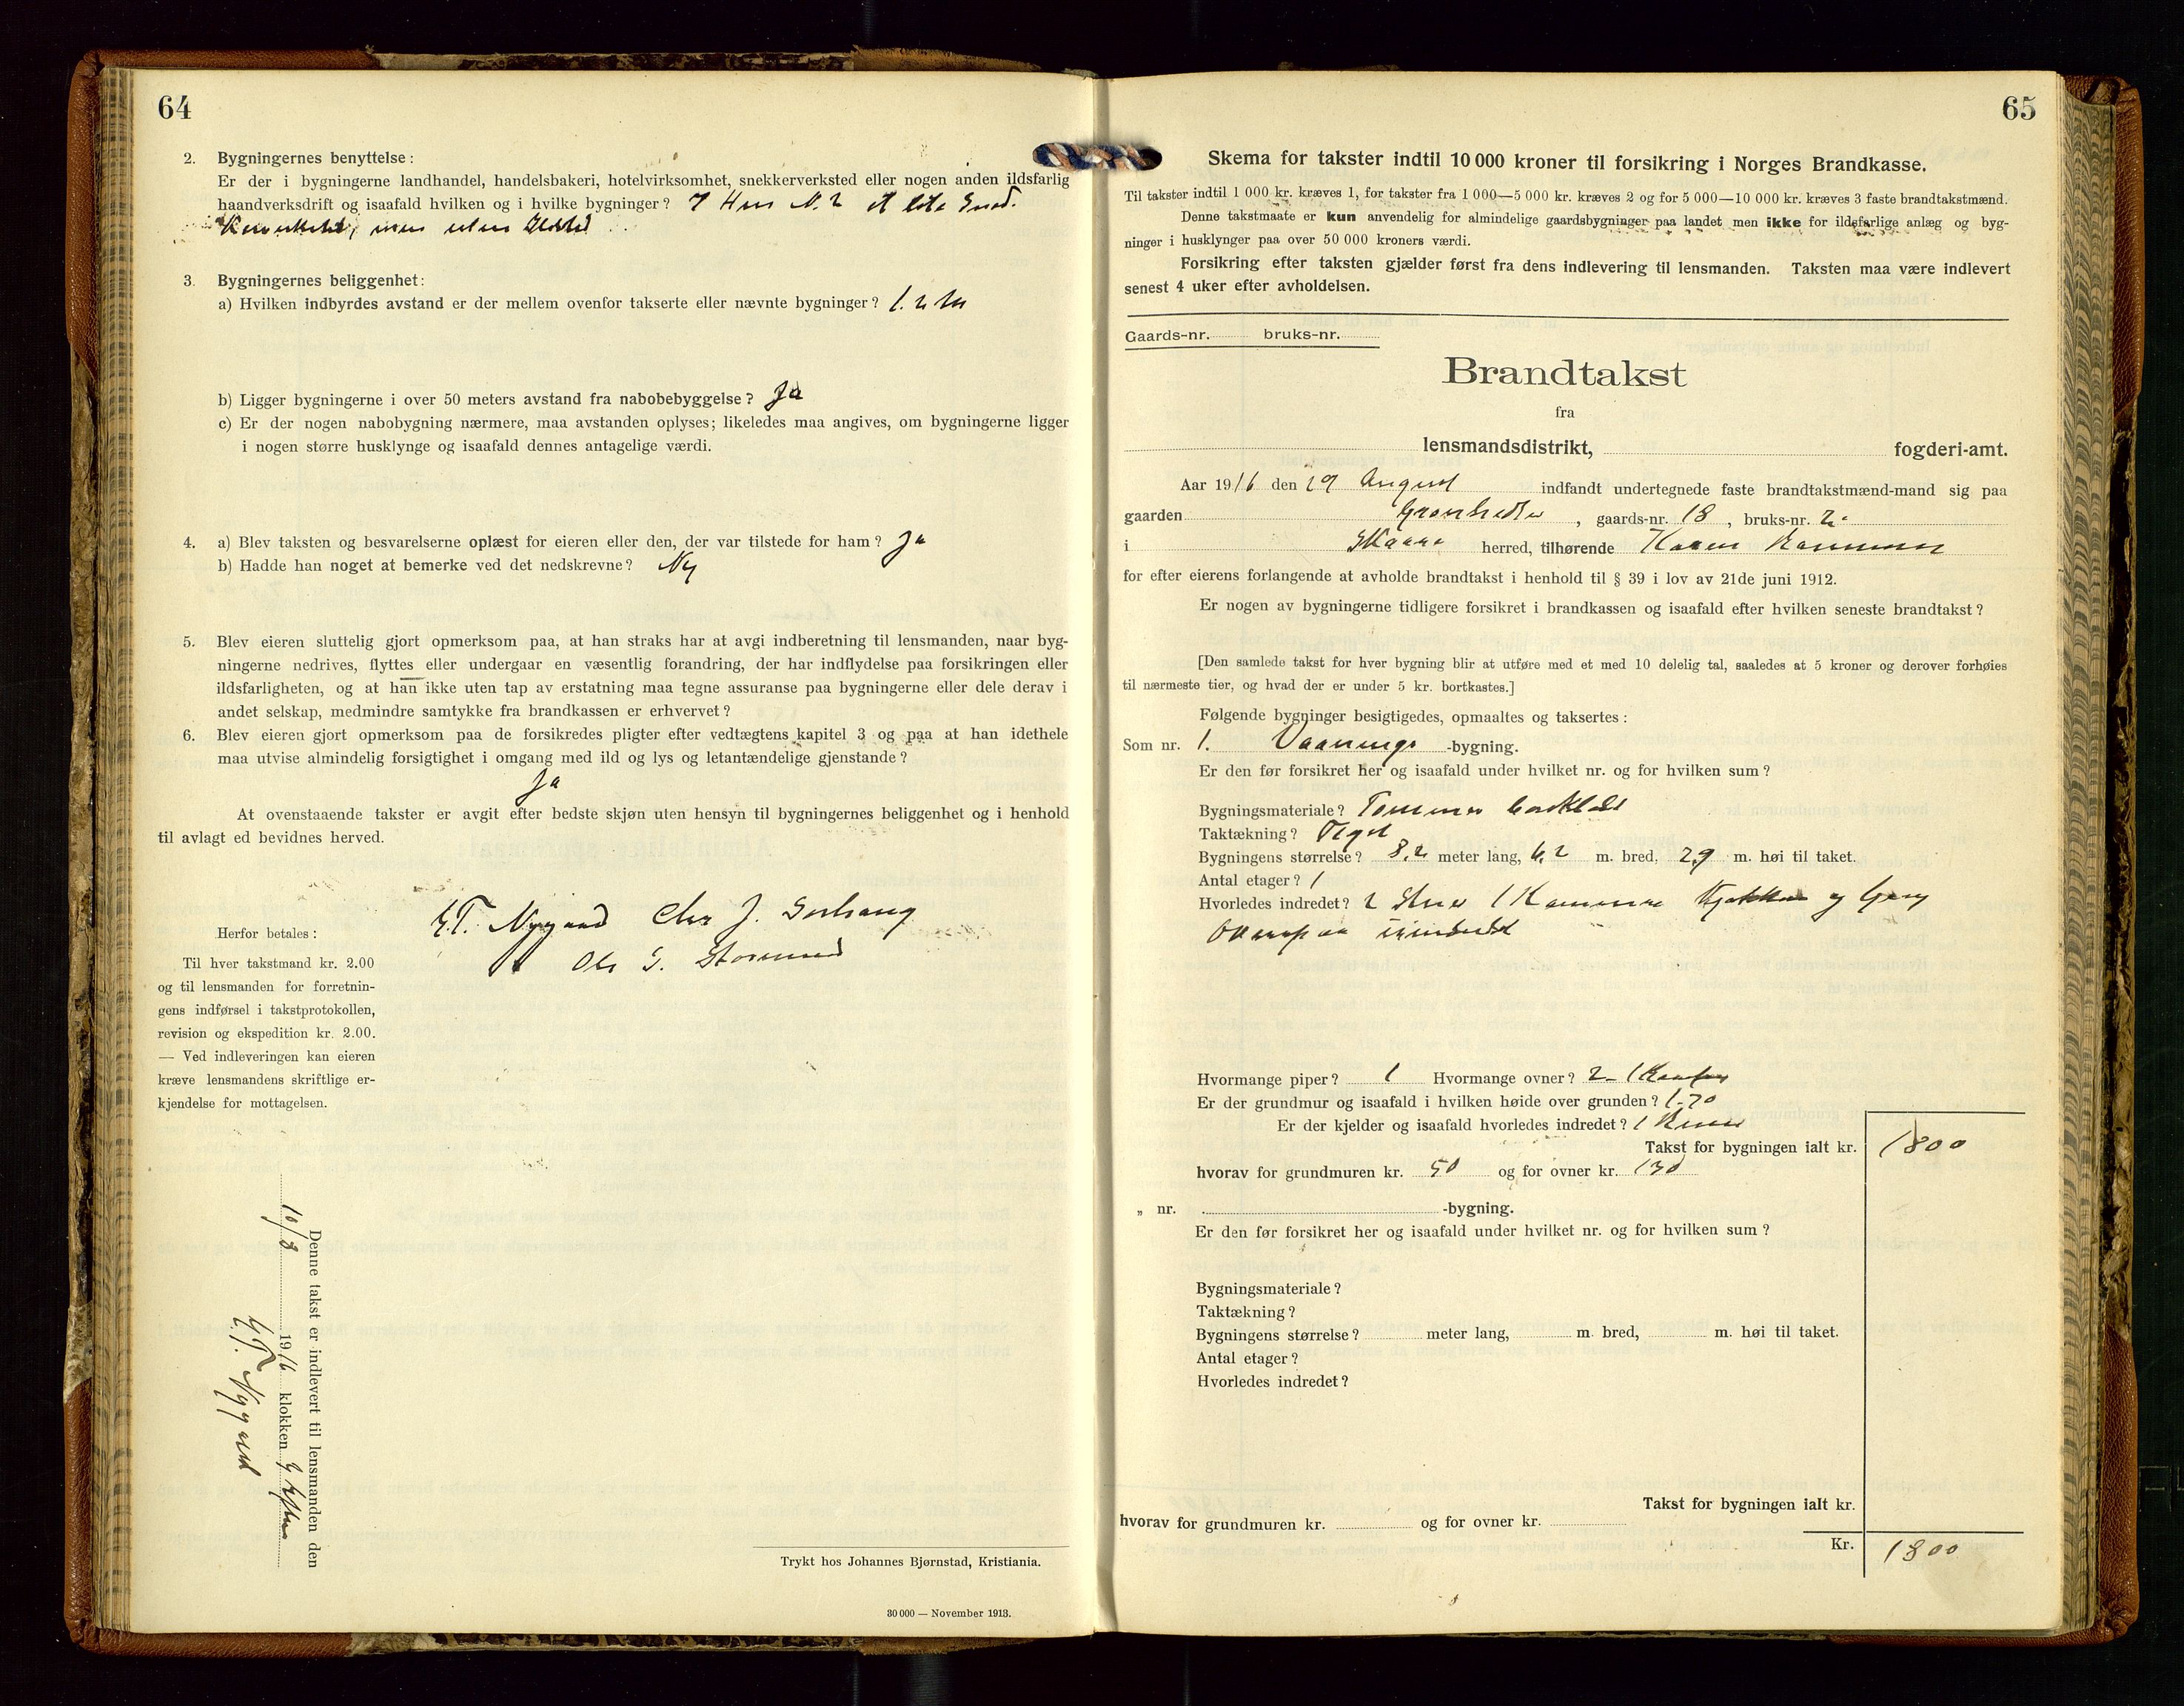 64
2. Bygningernes benyttelse:
Er der i bygningerne landhandel, handelsbakeri, hotelvirksomhet, snekkerverksted eller nogen anden ildsfarlig
haandverksdrift og isaafald hvilken og i hvilke bygninger? I Hus N. 2 et lite
men uten Ildsted
3. Bygningernes beliggenhet:
a) Hvilken indbyrdes avstand er der mellem ovenfor takserte eller nævnte bygninger?
b) Ligger bygningerne i over 50 meters avstand fra nabobebyggelse? Ja
c) Er der nogen nabobygning nærmere, maa avstanden oplyses; likeledes maa angives, om bygningerne ligger
i nogen større husklynge og isaafald dennes antagelige værdi.
4. a) Blev taksten og besvarelserne oplæst for eieren eller den, der var tilstede for ham? Ja
b) Hadde han noget at bemerke ved det nedskrevne? Nej
5. Blev eieren sluttelig gjort opmerksom paa, at han straks har at avgi indberetning til lensmanden, naar byg-
ningerne nedrives, flyttes eller undergaar en væsentlig forandring, der har indflydelse paa forsikringen eller
ildsfarligheten, og at han ikke uten tap av erstatning maa tegne assuranse paa bygningerne eller dele derav i
andet selskap, medmindre samtykke fra brandkassen er erhvervet?
6. Blev eieren gjort opmerksom paa de forsikredes pligter efter vedtægtens kapitel 3 og paa at han idethele
maa utvise almindelig forsigtighet i omgang med ild og lys og letantændelige gjenstande?
Ja
At ovenstaaende takster er avgit efter bedste skjøn uten hensyn til bygningernes beliggenhet og i henhold
til avlagt ed bevidnes herved.
Nygaard Chr J.
Ole S.
Herfor betales:
Til hver takstmand kr. 2.00
og til lensmanden for forretnin-
gens indførsel i takstprotokollen,
revision og ekspedition kr. 2.00.
— Ved indleveringen kan eieren
kræve lensmandens skriftlige er-
kjendelse for mottagelsen.
Denne takst er indlevert til lensmanden den
1916 klokken
Nygaard
Trykt hos Johannes Bjørnstad, Kristiania.
30 000 — November 1913.
65
Skema for takster indtil 10 000 kroner til forsikring i Norges Brandkasse.
Til takster indtil 1 000 kr. kræves 1, for takster fra 1 000—5 000 kr. kræves 2 og for 5 000—10 000 kr. kræves 3 faste brandtakstmænd.
Denne takstmaate er kun anvendelig for almindelige gaardsbygninger paa landet men ikke for ildsfarlige anlæg og byg-
ninger i husklynger paa over 50 000 kroners værdi.
Forsikring efter taksten gjælder først fra dens indlevering til lensmanden. Taksten maa være indlevert
senest 4 uker efter avholdelsen.
Gaards-nr. bruks-nr.
Brandtakst
fra
lensmandsdistrikt, fogderi-amt.
Aar 1916 den August indfandt undertegnede faste brandtakstmænd-mand sig paa
gaarden , gaards-nr. 18 , bruks-nr. 2
i Skaare herred, tilhørende
for efter eierens forlangende at avholde brandtakst i henhold til § 39 i lov av 21de juni 1912.
Er nogen av bygningerne tidligere forsikret i brandkassen og isaafald efter hvilken seneste brandtakst?
[Den samlede takst for hver bygning blir at utføre med et med 10 delelig tal, saaledes at 5 kroner og derover forhøies
til nærmeste tier, og hvad der er under 5 kr. bortkastes.]
Følgende bygninger besigtigedes, opmaaltes og taksertes:
Som nr. 1. Vaanings -bygning.
Er den før forsikret her og isaafald under hvilket nr. og for hvilken sum?
Bygningsmateriale? Tømmer bordklædt
Taktækning? Tegl
Bygningens størrelse? 8,2 meter lang, 6,2 m. bred, 2,9 m. høi til taket.
Antal etager? 1
Hvorledes indredet? 2 Stuer 1 Kammer Kjøkken og Gang
Ovenpaa uindredet
Hvormange piper? 1 Hvormange ovner? 2 - 1 Komfur
Er der grundmur og isaafald i hvilken høide over grunden? 1.70
Er der kjelder og isaafald hvorledes indredet? 1 Rum
Takst for bygningen ialt kr. 1800
hvorav for grundmuren kr. 50 og for ovner kr. 130
„ nr. -bygning.
Er den før forsikret her og isaafald under hvilket nr. og for hvilken sum?
Bygningsmateriale?
Taktækning?
Bygningens størrelse? meter lang, m. bred, m. høi til taket.
Antal etager?
Hvorledes indredet?
Takst for bygningen ialt kr.
hvorav for grundmuren kr. og for ovner kr.
Kr. 1800